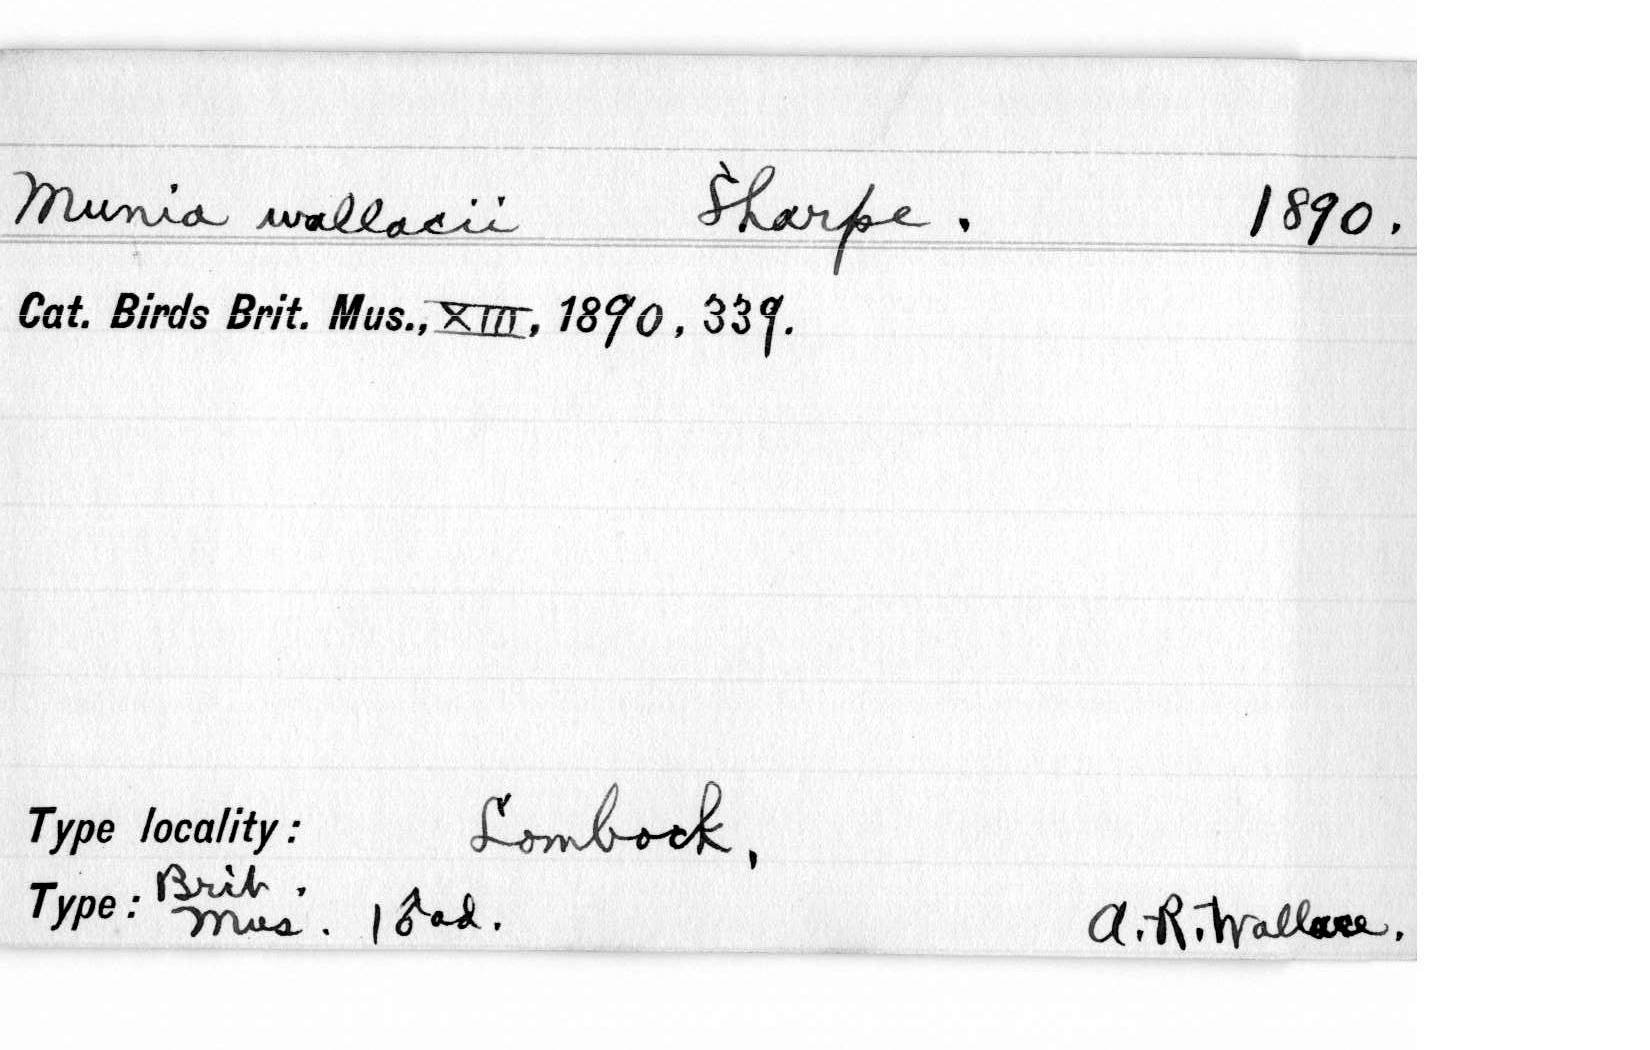 Munia wallacii Sharpe. 1890.
Cat. Birds Brit. Mus., XIII, 1890, 339.
Type locality: Lombock,
Type: Brit.
Mus. 1 ♂ ad. A. R. Wallace.